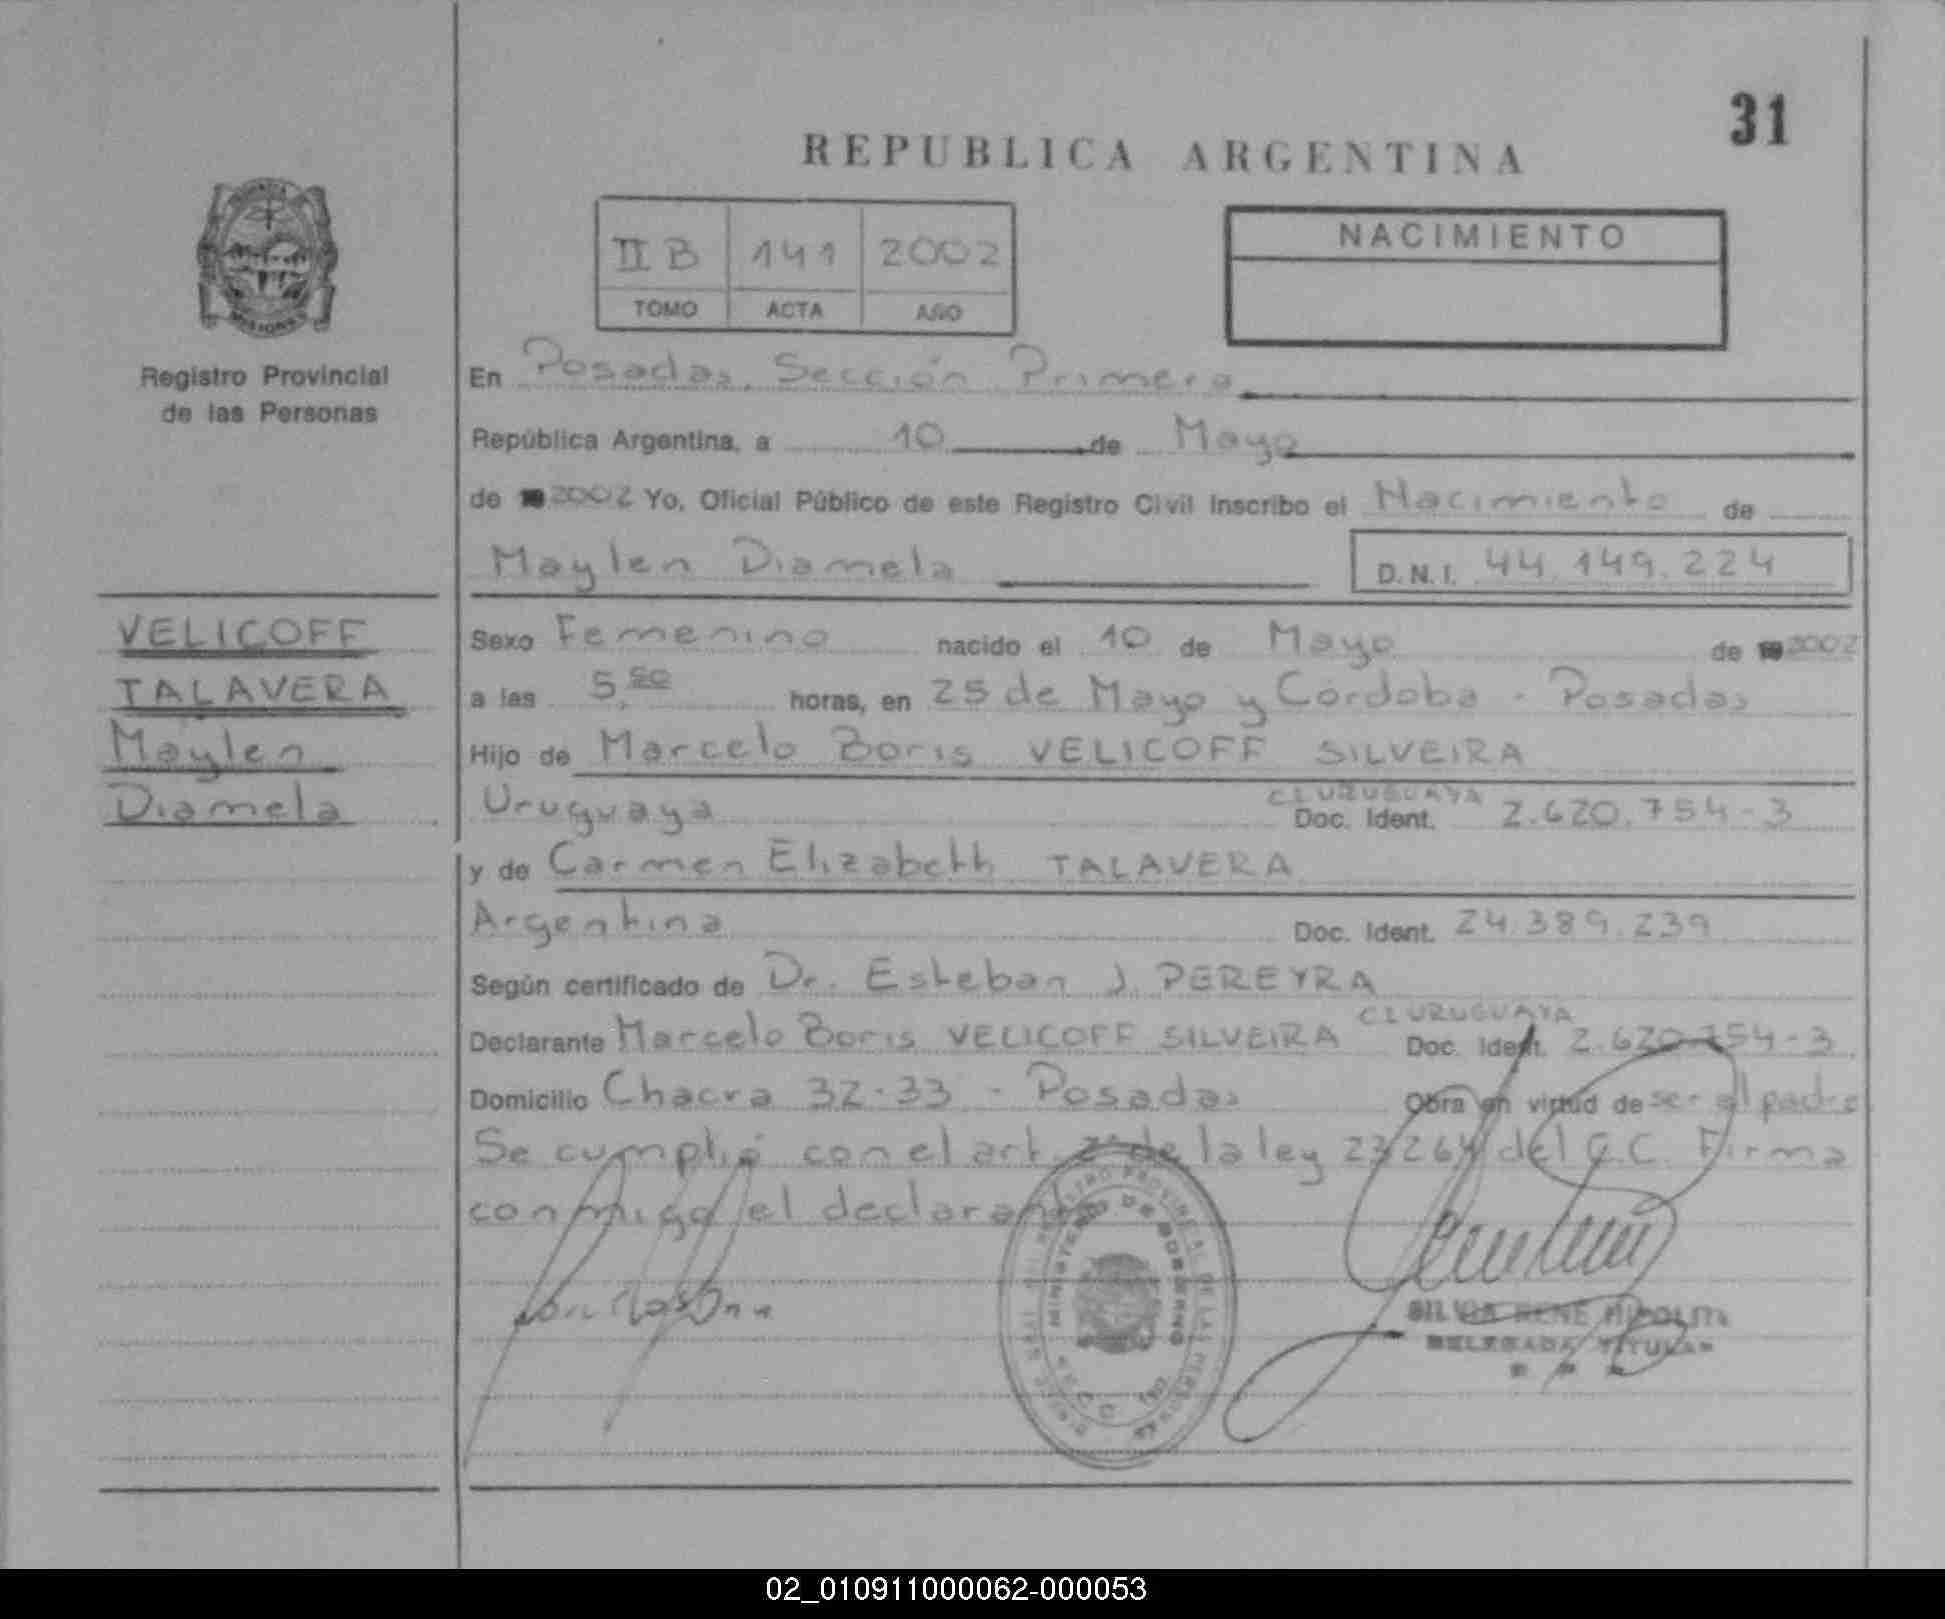 31
REPUBLICA ARGENTINA
II B 141 2002
TOMO ACTA AÑO
NACIMIENTO
Registro Provincial
de las Personas
En Posadas, Sección Primera
República Argentina, a 10 de Mayo
de 2002 Yo, Oficial Público de este Registro Civil inscribo el Nacimiento de
Maylen Diamela D.N.I. 44.149.224
VELICOFF
TALAVERA
Maylen
Diamela
Sexo Femenino nacido el 10 de Mayo de 2002
a las 5, horas, en 25 de Mayo y Córdoba - Posadas
Hijo de Marcelo Boris VELICOFF SILVEIRA
Uruguaya CI URUGUAYA Doc. Ident. 2.620.754-3
y de Carmen Elizabeth TALAVERA
Argentina Doc. Ident. 24.389.239
Según certificado de Dr. Esteban J. PEREYRA
Declarante Marcelo Boris VELICOFF SILVEIRA CI URUGUAYA Doc. Ident. 2.620.754-3
Domicilio Chacra 32-33 - Posadas Obra en virtud de ser el padre
Se cumplió con el art. de la ley 23264 del C.C. Firma
conmigo el declarante
REGISTRO PROVINCIAL DE LAS PERSONAS
MINISTERIO DE GOBIERNO
SILVIA RENE
DELEGADA TITULAR
02_010911000062-000053